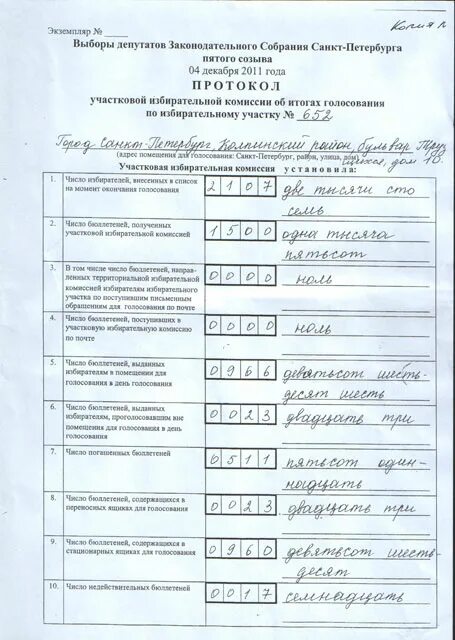 Копия
Экземпляр № ____
Выборы депутатов Законодательного Собрания Санкт-Петербурга
пятого созыва
04 декабря 2011 года
ПРОТОКОЛ
участковой избирательной комиссии об итогах голосования
по избирательному участку № 652
Город Санкт-Петербург, Колпинский район, бульвар Труд
(адрес помещения для голосования: Санкт-Петербург, район, улица, дом)
ящихся, дом 18.
Участковая избирательная комиссия установила:
1. Число избирателей, внесенных в список 2 1 0 7 две тысячи сто
на момент окончания голосования семь
2. Число бюллетеней, полученных 1 5 0 0 одна тысяча
участковой избирательной комиссией пятьсот
3. В том числе число бюллетеней, направ-
ленных территориальной избирательной 0 0 0 0 ноль
комиссией избирателям избирательного
участка по поступившим письменным
обращениям для голосования по почте
4. Число бюллетеней, поступивших в 0 0 0 0 ноль
участковую избирательную комиссию
по почте
5. Число бюллетеней, выданных 0 9 6 6 девятьсот шесть-
избирателям в помещении для
голосования в день голосования десят шесть
6. Число бюллетеней, выданных 0 0 2 3 двадцать три
избирателям, проголосовавшим вне
помещения для голосования в день
голосования
7. Число погашенных бюллетеней 0 5 1 1 пятьсот один-
надцать
8. Число бюллетеней, содержащихся в 0 0 2 3 двадцать три
переносных ящиках для голосования
9. Число бюллетеней, содержащихся в 0 9 6 0 девятьсот шесть-
стационарных ящиках для голосования десят
10. Число недействительных бюллетеней 0 0 1 7 семнадцать